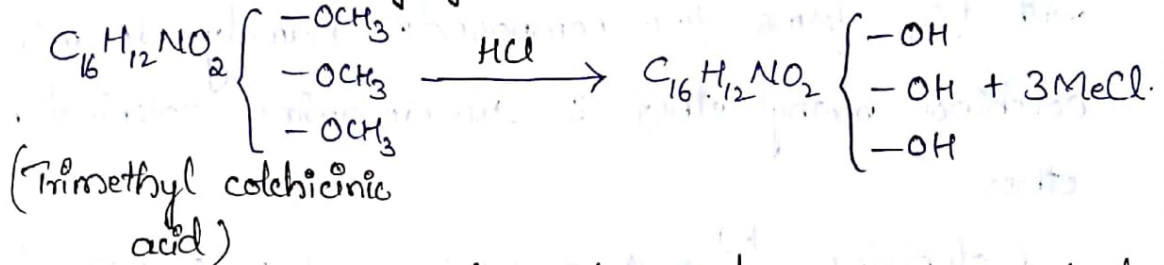 C₁₆H₁₂NO₂ { –OCH₃ –OCH₃ –OCH₃ HCl → C₁₆H₁₂NO₂ { –OH –OH –OH + 3MeCl.
(Trimethyl colchicinic
acid)